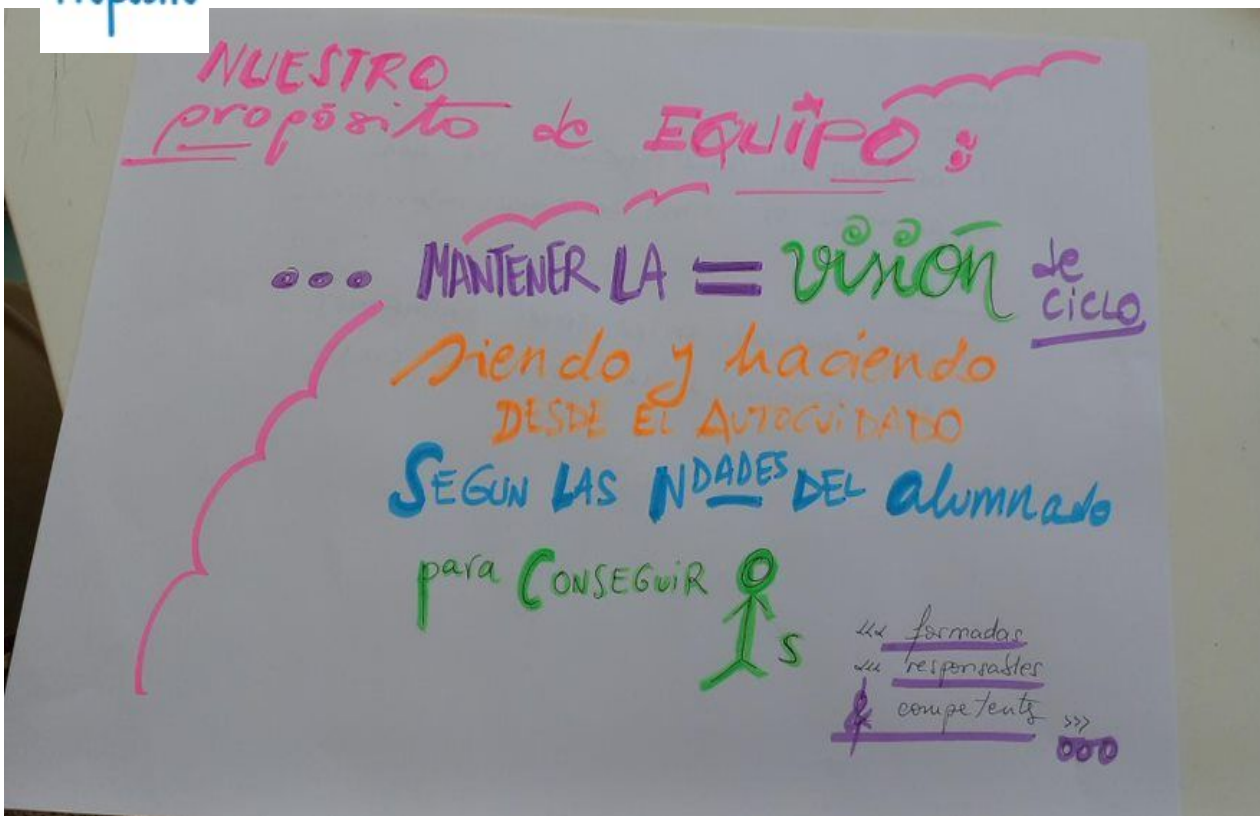 Propósito
NUESTRO
propósito de EQUIPO:
... MANTENER LA = visión de CICLO
siendo y haciendo
DESDE EL AUTOCUIDADO
SEGUN LAS NDADES DEL alumnado
para CONSEGUIR s
formadas
responsables
& competents >>>